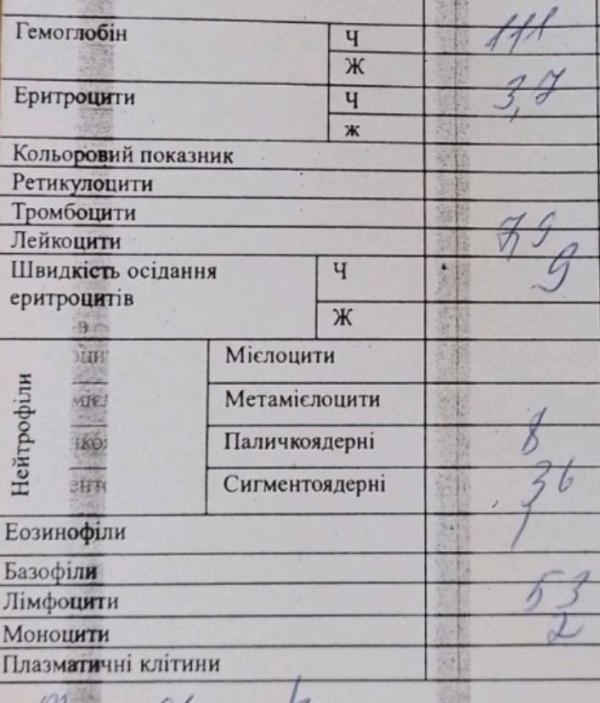 Гемоглобін Ч 111
Ж
Еритроцити Ч 3,7
ж
Кольоровий показник
Ретикулоцити
Тромбоцити
Лейкоцити 7,9
Швидкість осідання Ч 9
еритроцитів
Ж
Нейтрофіли
Мієлоцити
Метамієлоцити
Паличкоядерні 8
Сигментоядерні 36
Еозинофіли 1
Базофіли
Лімфоцити 53
Моноцити 2
Плазматичні клітини